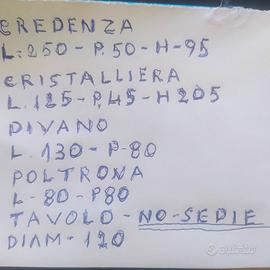 CREDENZA
L:250-P.50-H-95
CRISTALLIERA
L.125-P.45-H205
DIVANO
L.130-P-80
POLTRONA
L-80-P80
TAVOLO-NO-SEDIE
DIAM-120
subito